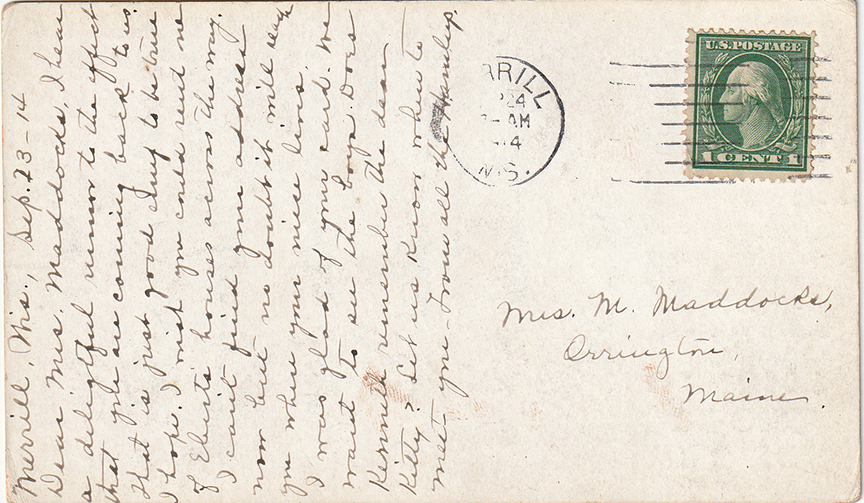 Merrill, Wis., Sep. 23-14
Dear Mrs. Maddocks, I hear
a delightful rumor to the effect
that you are coming back to us.
that is just good enuf to be true
I hope. I wish you could rent one
of Ebert's houses across the way.
I can't find your address
now but no doubt it will reach
you when your niece lives.
I was glad of your card. We
want to see the boys. Does
Kenneth remember the dear
Kitty? Let us know when to
meet you - From all the Hamlips.
RRILL
24
-AM
4
WIS.
U.S. POSTAGE
1 CENT 1
Mrs. M. Maddocks,
Orrington,
Maine.